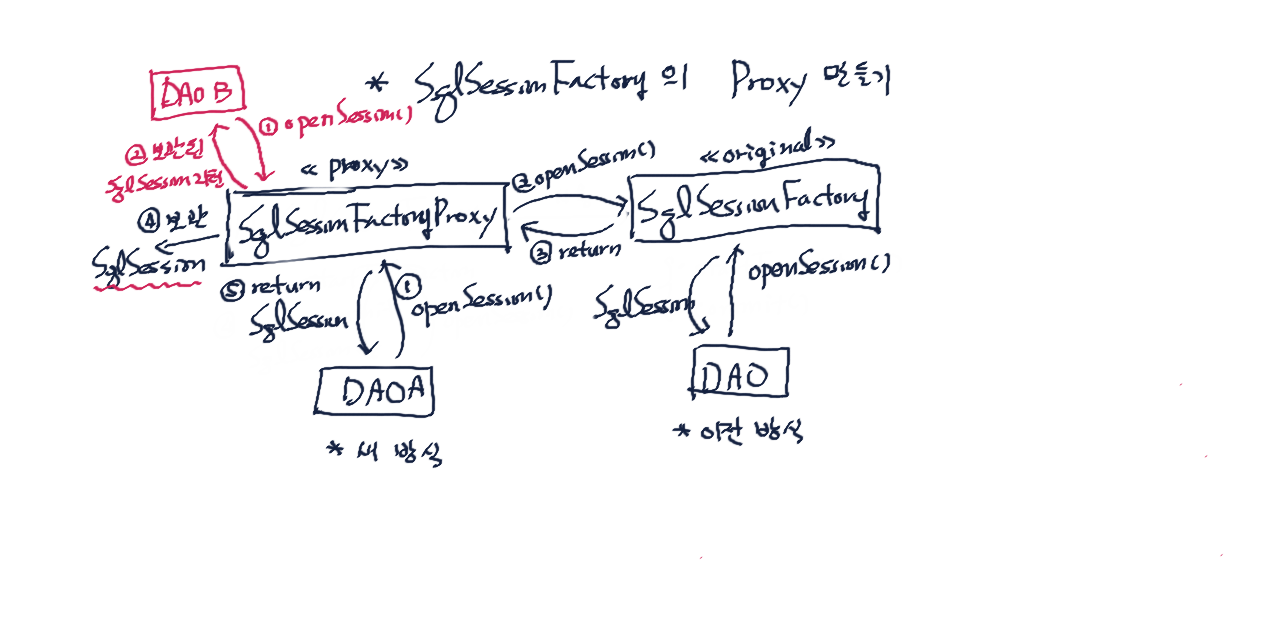 * SqlSessionFactory 의 Proxy 만들기
DAO B
① openSession()
② 보관된
SqlSession 리턴
<< proxy >>
SqlSessionFactoryProxy
② openSession()
③ return
<< original >>
SqlSessionFactory
④ 보관
SqlSession
⑤ return
SqlSession
① openSession()
DAOA
* 새 방식
SqlSession
openSession()
DAO
* 이전 방식